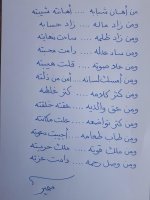 من أهان شبابه .... أهانته شيبته
ومن زاد ماله .... زاد حسابه
ومن زاد ظلمه .... ساءت نهايته
ومن ساد عدله .... دامت محبته
ومن علا صوته .... قلت هيبته
ومن أمسك لسانه .... أمن من زلته
ومن كثر كلامه .... كثر خطئه
ومن عق والديه .... عقته خلفته
ومن كثر تواضعه .... علت مكانته
ومن طاب طعامه .... أجيبت دعوته
ومن ملك قوته .... ملك حريته
ومن وصل رحمه .... دامت عزته